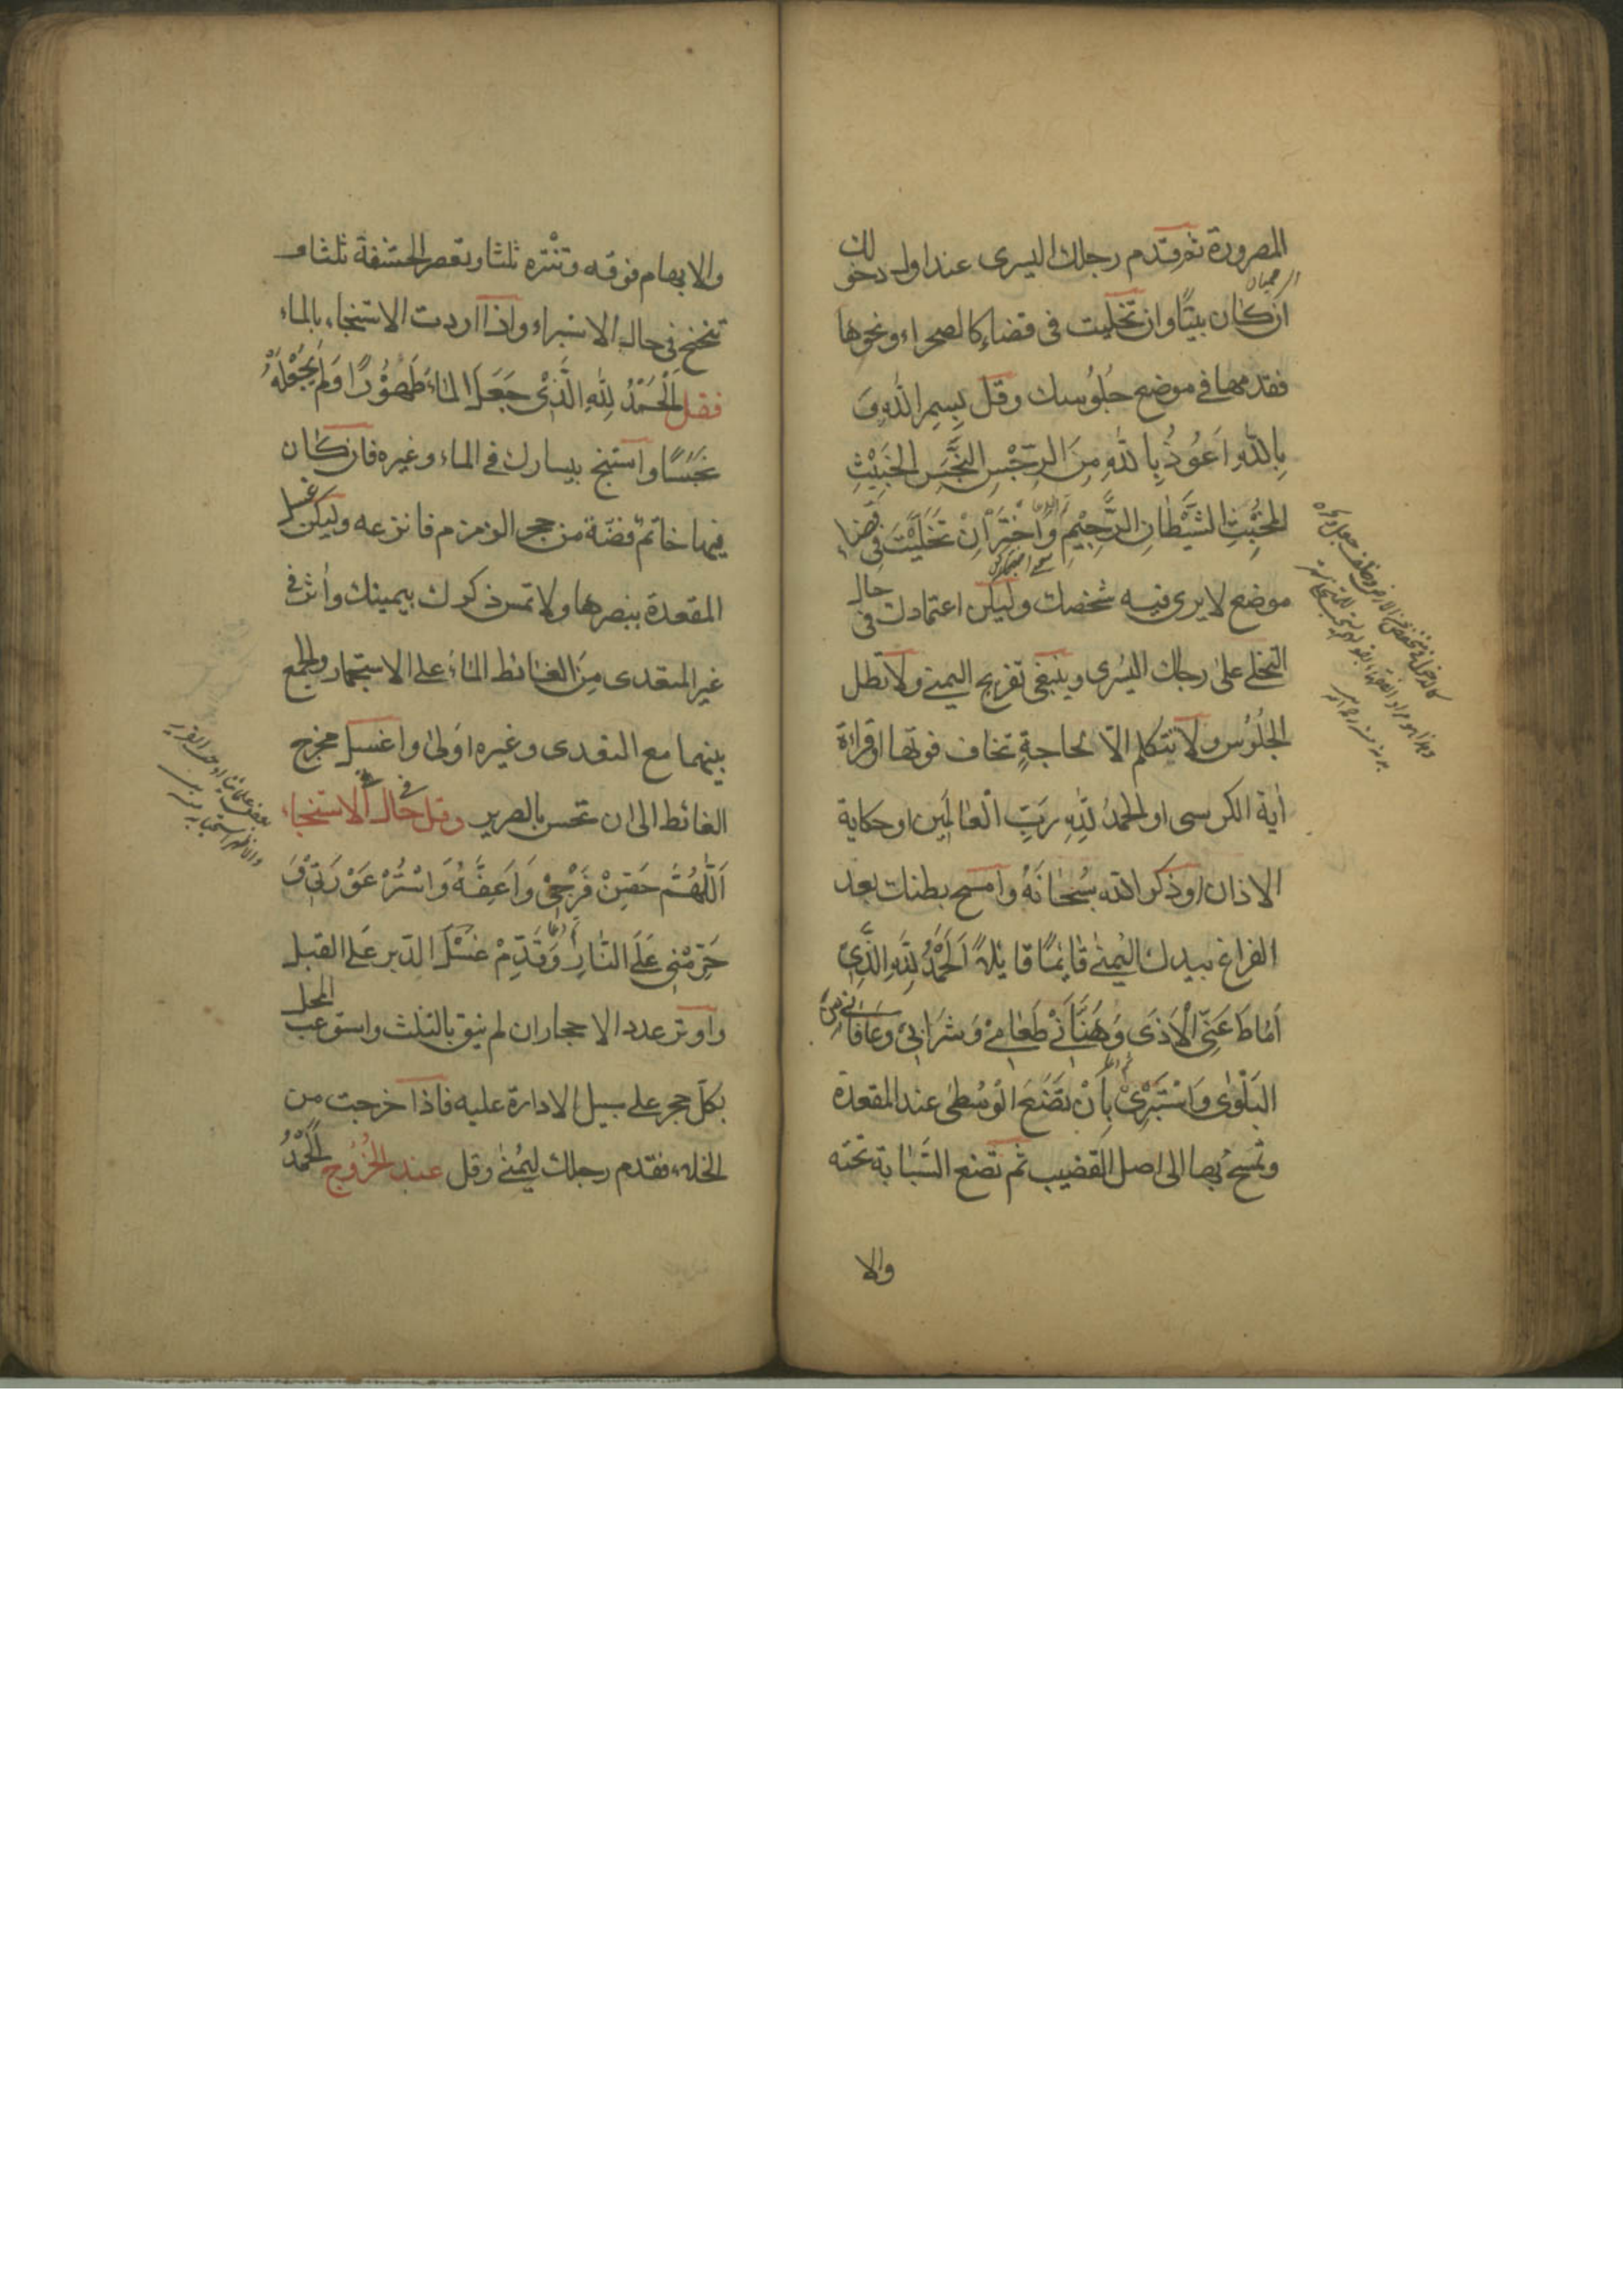 المصرورة ثم وقدم رجلك اليسرى عند اول دخولك
ان كان بيتًا وان تخليت فى فضاء كالصحراء ونحوها
فقدمها فى موضع جُلُوسك وقل بِسمِ اللهِ وَ
بِاللهِ اَعُوذُ بِاللهِ مِنَ الرِّجْسِ النَّجَسِ الخَبِيْثِ
المُخْبِثِ الشَّيْطَانِ الرَّجِيْمِ وَاخْتَرْ اِنْ تَخَلَّيْتَ فى فضاء
موضع لا يرى فيه شخصك وليكن اعتمادك فى حال
التخلى على رجلك اليُسرى وينبغى تفريج اليمنى ولا تطل
الجُلُوس ولا تتكلم الّا لحاجةٍ تخاف فوتها او قراءة
اٰية الكرسى او الحمدُ لِلّٰهِ رَبِّ العَالَمِين او حكاية
الاذان او ذكر الله سُبحَانَهُ وامسح بطنك بعد
الفراغ بيدك اليُمنىٰ قائِمًا قائِلاً اَلحَمْدُ لِلّٰهِ الَّذِى
اَمَاطَ عَنِّى الْاَذَى وَهَنَّاَنِى طَعَامِى وَشَرَابِى وَعَافَانِى مِنَ
البَلْوٰى وَاسْتَبْرِئْ بِاَنْ تَضَعَ الوُسْطىٰ عند المقعدة
وتمسح بها الى اصل القضيب ثم تضع السَّبّابة تحته
والا
والابهام فوقه وتنْتره ثلثا وتعصر الحشفة ثلثا و
تنحنح فى حال الاستبراء واذا اردت الاستنجاء بالماء
فقل اَلْحَمْدُ لِلّٰهِ الَّذِىْ جَعَلَ المَاءَ طَهُوْرًا وَلَمْ يَجْعَلْهُ
نَجَسًا واستنج بيسارك فى الماء وغيره فان كان
فيها خاتم فضّة من حجر الزمزم فانزعه وليكن غسل
المقعدة ببنصرها ولا تمس ذكرك بيمينك وأثر فى
غير المتعدى مِنَ الغائط الماءَ على الاستجمار والجمع
بينهما مع التعدى وغيره اولى واغسل مخرج
الغائط الى ان تحس بالصرير وقل فى حال الاستنجاء
اَللّٰهُمَّ حَصِّنْ فَرْجِىْ وَاَعِفَّهُ وَاسْتُرْ عَوْرَتِىْ وَ
حَرِّمْنِى عَلَى النَّارِ وَقَدِّمْ غَسْلَ الدّبر عَلى القبل
واوتر عدد الاحجار ان لم ينق بالثلث واستوعب المحل
بكلّ حجر على سبيل الادارة عليه فاذا خرجت من
الخلاء فقدم رجلك اليُمنىٰ وقل عند الخُرُوجِ اَلحَمْدُ